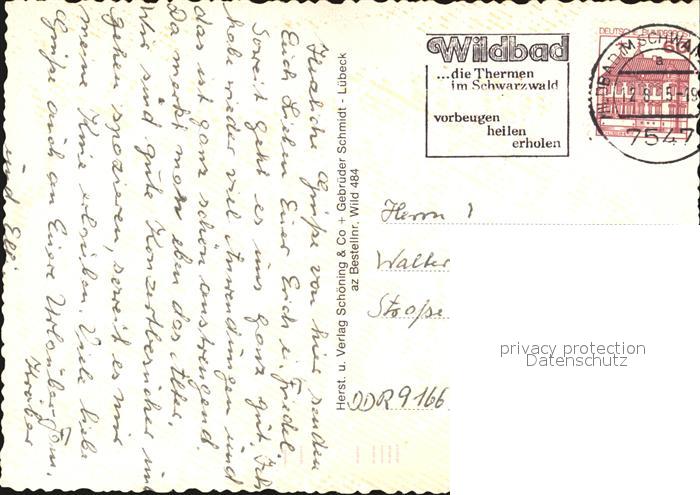 Herzliche Grüße von hier senden
Euch Lieben Euer Erich u. Friedel.
Soweit geht es uns ganz gut. Ich
habe wieder viel Anwendungen und
das ist ganz schön anstrengend.
Da merkt man eben das Alter.
Wir sind gute Konzertbesucher und
gehen spazieren, soweit es mir
meine Knie erlauben. Viele liebe
Grüße auch an Eure Urlauber
und Elli
Herst. u. Verlag Schöning & Co + Gebrüder Schmidt - Lübeck
az Bestellnr. Wild 484
Wildbad
...die Thermen
im Schwarzwald
vorbeugen
heilen
erholen
DEUTSCHE BUNDESPOST
60
WILDBAD IM SCHWARZWALD
a
7547
Herrn
Walter
Straße
DDR 9166
privacy protection
Datenschutz